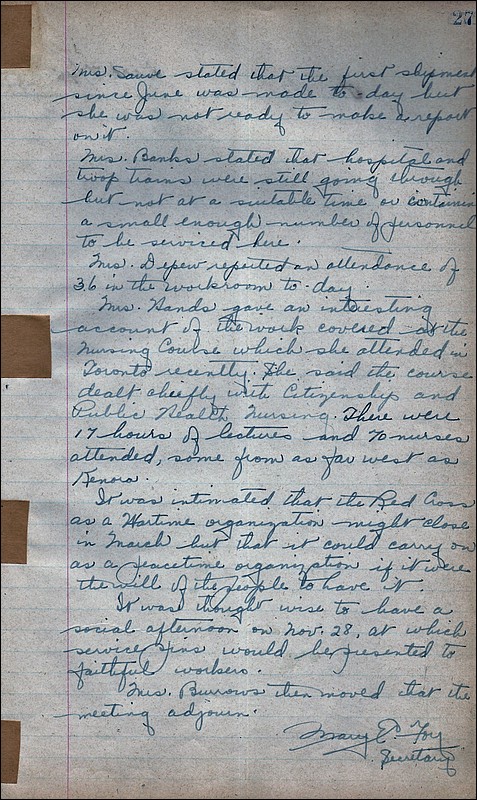 27
Mrs. Sauve stated that the first shipment
since June was made to-day but
she was not ready to make a report
on it.
Mrs. Banks stated that hospital and
troop trains were still going through
but not at a suitable time or containin
a small enough number of personnel
to be serviced here.
Mrs. Depew reported an attendance of
36 in the workroom to-day.
Mrs. Hands gave an interesting
account of the work covered at the
Nursing Course which she attended in
Toronto recently. She said the course
dealt cheefly with Citizenship and
Public Health Nursing. There were
17 hours of lectures and 70 nurses
attended, some from as far west as
Kenora.
It was intimated that the Red Cross
as a Wartime organization might close
in March but that it could carry on
as a peacetime organization if it were
the will of the people to have it.
It was thought wise to have a
social afternoon on Nov. 28, at which
service pins would be presented to
faithful workers.
Mrs. Burrows then moved that the
meeting adjourn.
Mary E. Foy
Secretary